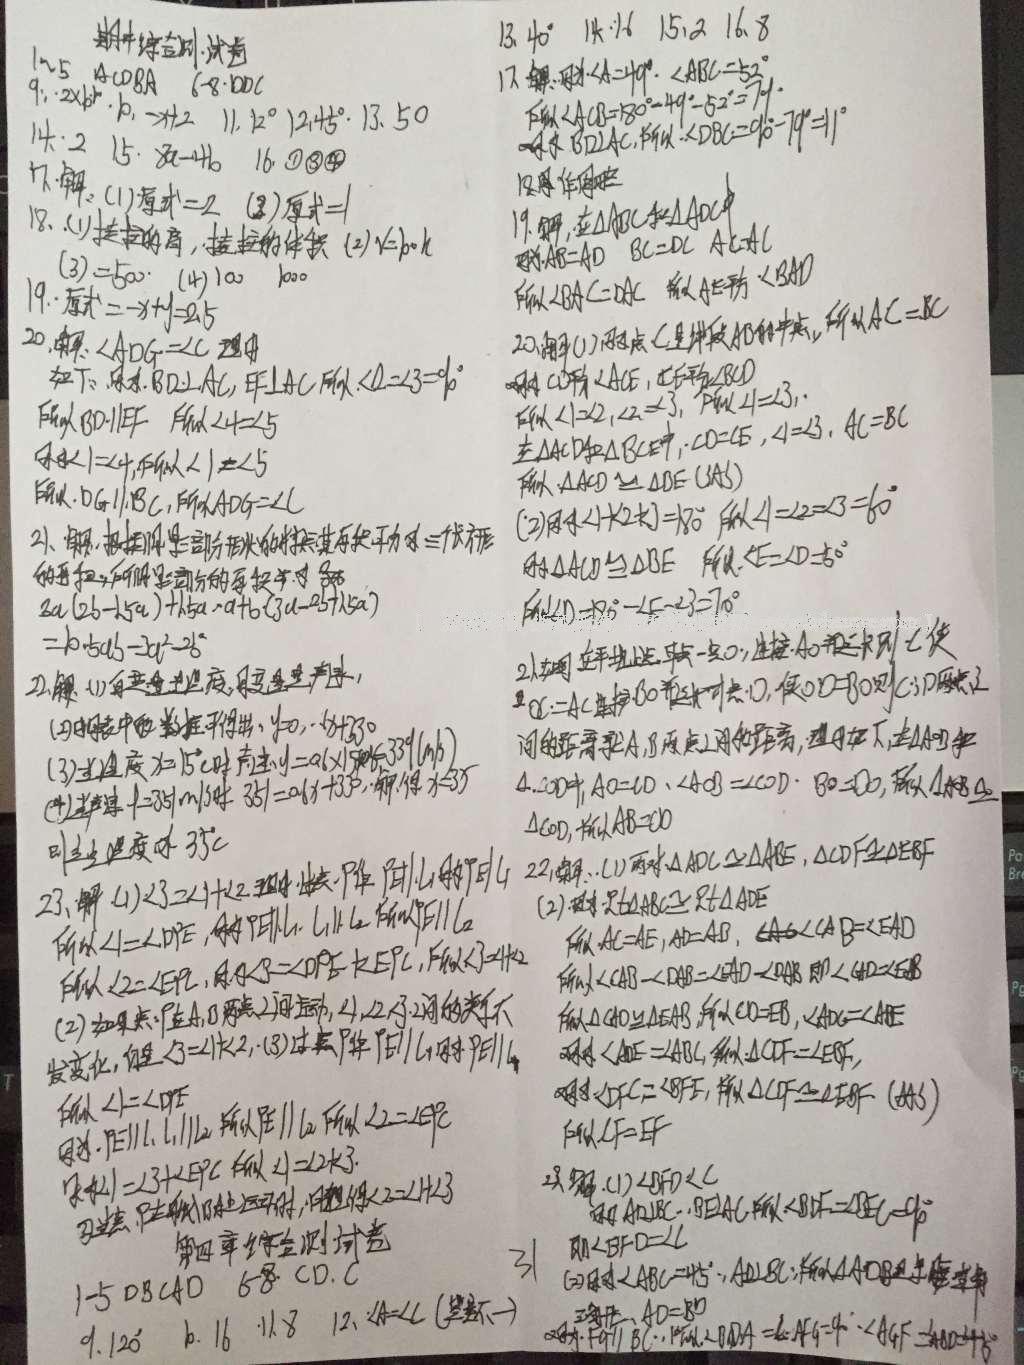 期中综合测试卷
1~5 ACDBA 6-8 DDC
10. -x+2 11. 12° 12. 45° 13. 50
14. 2 15. 8a-4b 16. ①③④
17. 解: (1)原式=2 (2)原式=1
18. (1)拉的高, 的体积 (2) V=10h
(3)=500 (4)100 1000
19. 原式=-x+y=2.5
20. 解: <ADG=<C 理由
如下: 因为BD⊥AC, EF⊥AC 所以<2=<3=90°
所以BD//EF 所以<4=<5
因为<1=<4, 所以<1=<5
所以DG//BC, 所以ADG=<C
21. 解: 根据阴影部分形状的特点其面积
的面积, 所以阴影部分的面积
3a(2b-1.5a)+1.5a
22. 解: (1)自变量是温度, 因变量是声速,
(2)由表中的数据可得出 y=0.6x+330
(3)当温度x=15℃时 声速y=0.6×15+330=339(m/s)
(4)当声速y=351m/s时 351=0.6x+330 解得x=35
即当温度为35℃
23. 解 (1)<3=<1+<2 理由: 过点P作PE//L₁ 因为PE//L₁
所以<1=<DPE, 因为PE//L₁ L₁//L₂ 所以PE//L₂
所以<2=<EPC, 因为<3=<DPE+<EPC, 所以<3=<1+<2
(2)如果点P在A,B两点之间运动, <1,<2,<3之间的关系不
发变化, 仍是<3=<1+<2, (3)过点P作PE//L₁ 因为PE//L₁
所以<1=<DPE
因为PE//L₁ L₁//L₂ 所以PE//L₂ 所以<2=<EPC
因为<1=<3+<EPC 所以<1=<2+<3.
当点P在 上运动时, 同理得<2=<1+<3
第四章综合测试卷
1-5 DBCAD 6-8 CD.C
9. 120° 10. 16 11. 8 12. <A=<C (答案不一)
13. 40° 14. 16 15. 2 16. 8
17. 解: 因为<A=49° <ABC=52°
所以<ACB=180°-49°-52°=79°.
因为BD⊥AC, 所以<DBC=90°-79°=11°
18. 作图略
19. 解, 在△ABC和△ADC中
因为AB=AD BC=DC AC=AC
所以<BAC=DAC 所以AE平分<BAD
20. 解(1)因为点C是线段AB的中点, 所以AC=BC
因为CD平分<ACE, CE平分<BCD
所以<1=<2, <2=<3, 所以<1=<3.
在△ACD和△BCE中, CD=CE, <1=<3, AC=BC
所以△ACD≌△BE (SAS)
(2)因为<1+<2+<3=180° 所以<1=<2=<3=60°
因为△ACD≌△BE 所以<E=<D=50°
所以<D=180°-<E-<3=70°
21. 如图 在平地上选一点O, 连接AO并延长到C使
OC=AC 连接BO并延长到点D, 使OD=BO则C,D两点之
间的距离就是A,B两点之间的距离, 理由如下, 在△AOB和
△COD中, AO=CO <AOB=<COD BO=DO, 所以△AOB≌
△COD, 所以AB=CD
22. 解: (1)两对△ADC≌△ABE, △CDF≌△EBF
(2)因为Rt△ABC≌Rt△ADE
所以AC=AE, AD=AB, <CAB=<EAD
所以<CAB-<DAB=<EAD-<DAB 即<CAD=<EAB
所以△CAD≌△EAB, 所以CD=EB, <ADC=<ABE
因为<ADE=<ABC, 所以△CDF=<EBF,
因为<DFC=<BFE, 所以△CDF≌△EBF (AAS)
所以CF=EF
23. 解(1)<BFD<C
因为AD⊥BC, BE⊥AC 所以<BDF=<BEC=90°
即<BFD=<C
31
(2)因为<ABC=45°, AD⊥BC, 所以△ADB是等腰直角
三角形, AD=BD
因为FG//BC, 所以<BDA=<AFG=90° <AGF=<ABD=45°